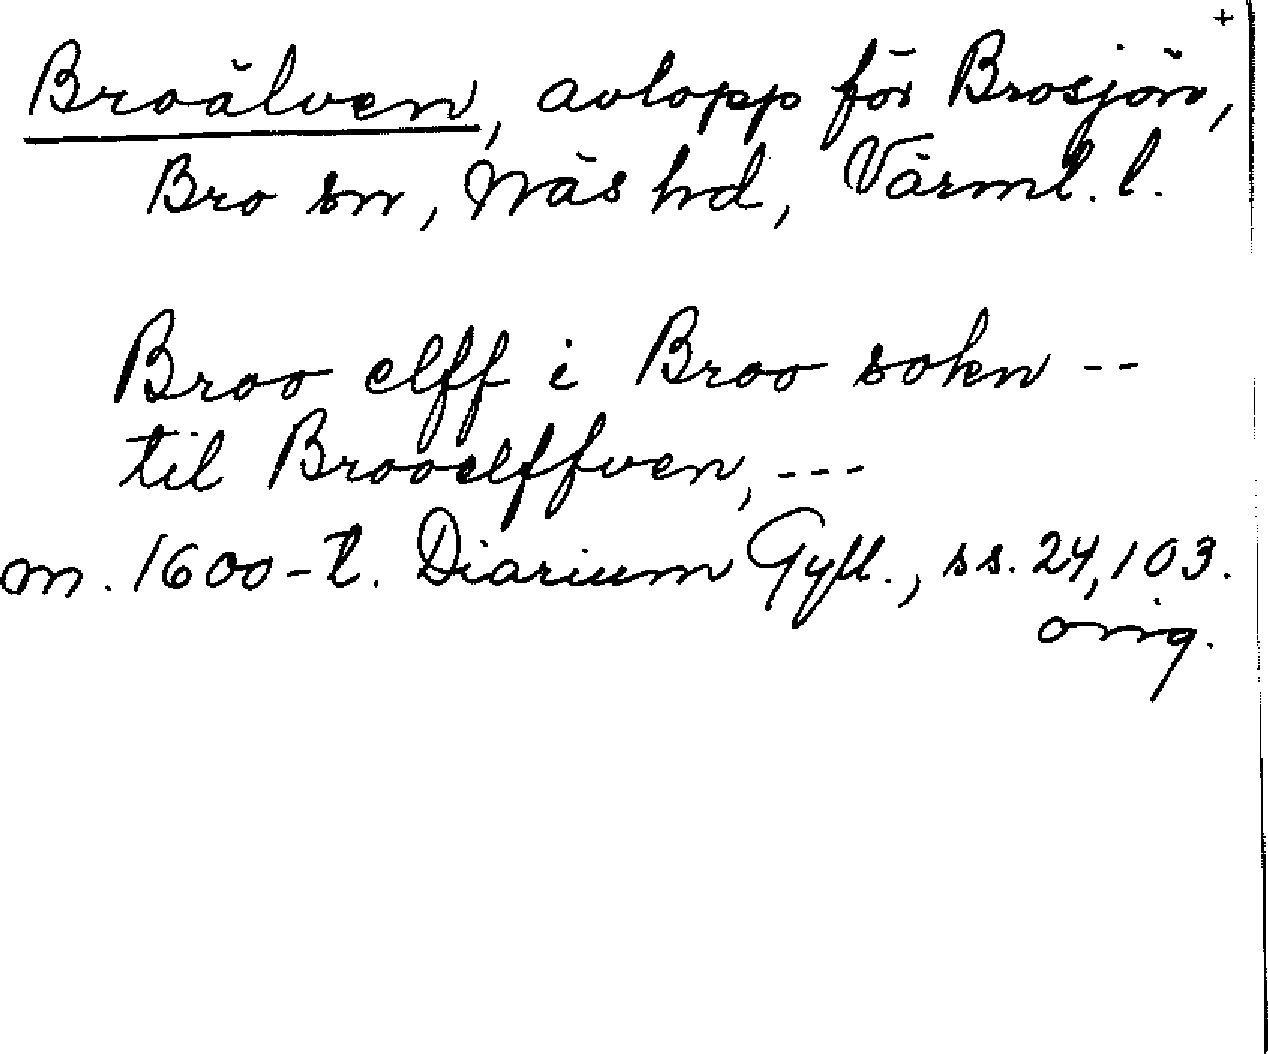 +
Broälven, avlopp för Brosjön,
Bro sn, Näs hd, Värml. l.
Broo elff i Broo sokn --
til Brooelffven, ---
m. 1600-t. Diarium Gyll., ss. 24, 103.
orig.